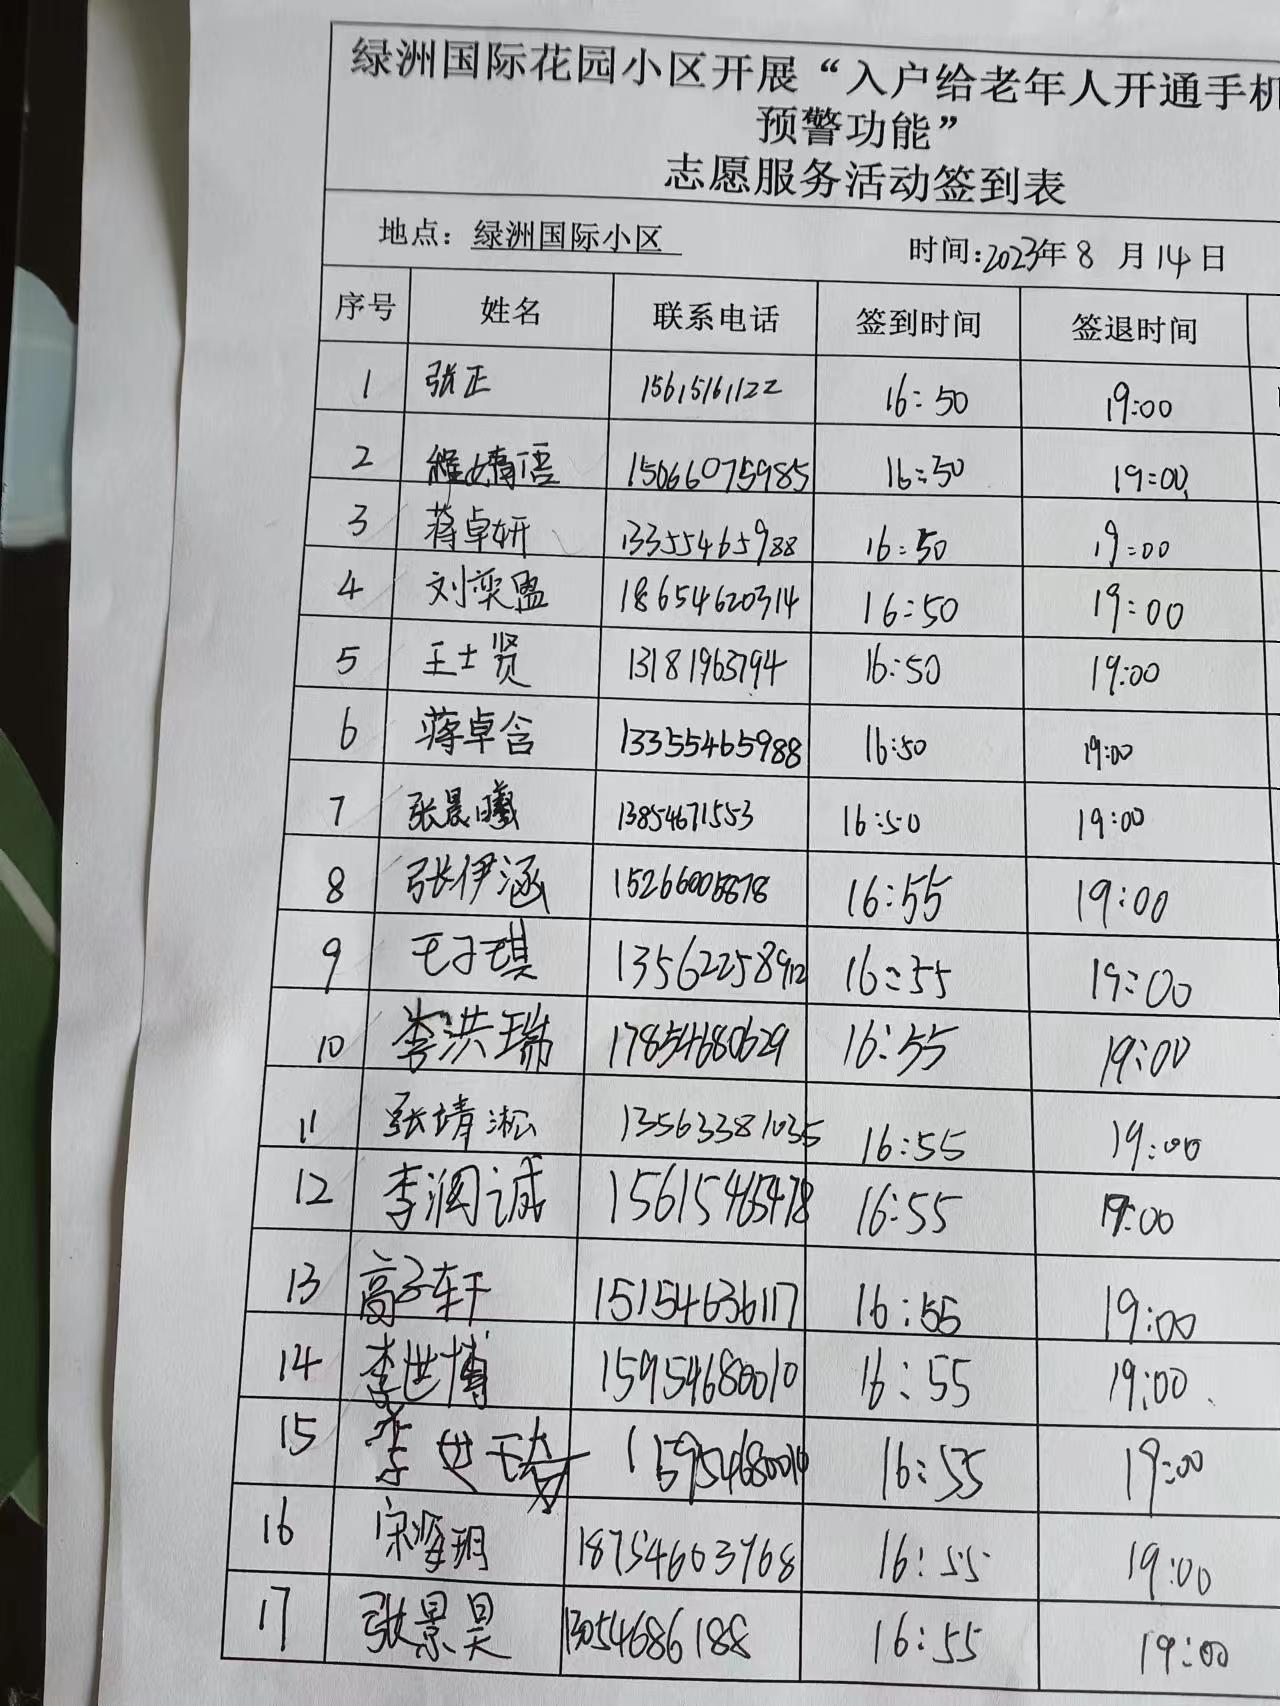 绿洲国际花园小区开展“入户给老年人开通手机
预警功能”
志愿服务活动签到表
地点：绿洲国际小区 时间：2023年8月14日
序号 姓名 联系电话 签到时间 签退时间
1 张正 15615161122 16:50 19:00
2 程婧语 15066075985 16:50 19:00
3 蒋卓妍 13355465988 16:50 19:00
4 刘奕盟 18654620314 16:50 19:00
5 王士贤 13181963794 16:50 19:00
6 蒋卓含 13355465988 16:50 19:00
7 张晨曦 13854671553 16:50 19:00
8 张伊涵 16:55 19:00
9 王子琪 13562258912 16:55 19:00
10 李洪瑞 17854680629 16:55 19:00
11 张靖淞 13563381035 16:55 19:00
12 李润诚 15615465478 16:55 19:00
13 高子轩 15154636117 16:55 19:00
14 李世博 15954680010 16:55 19:00
15 李世琦 15954680010 16:55 19:00
16 18754603768 16:55 19:00
17 张景昊 13054686188 16:55 19:00